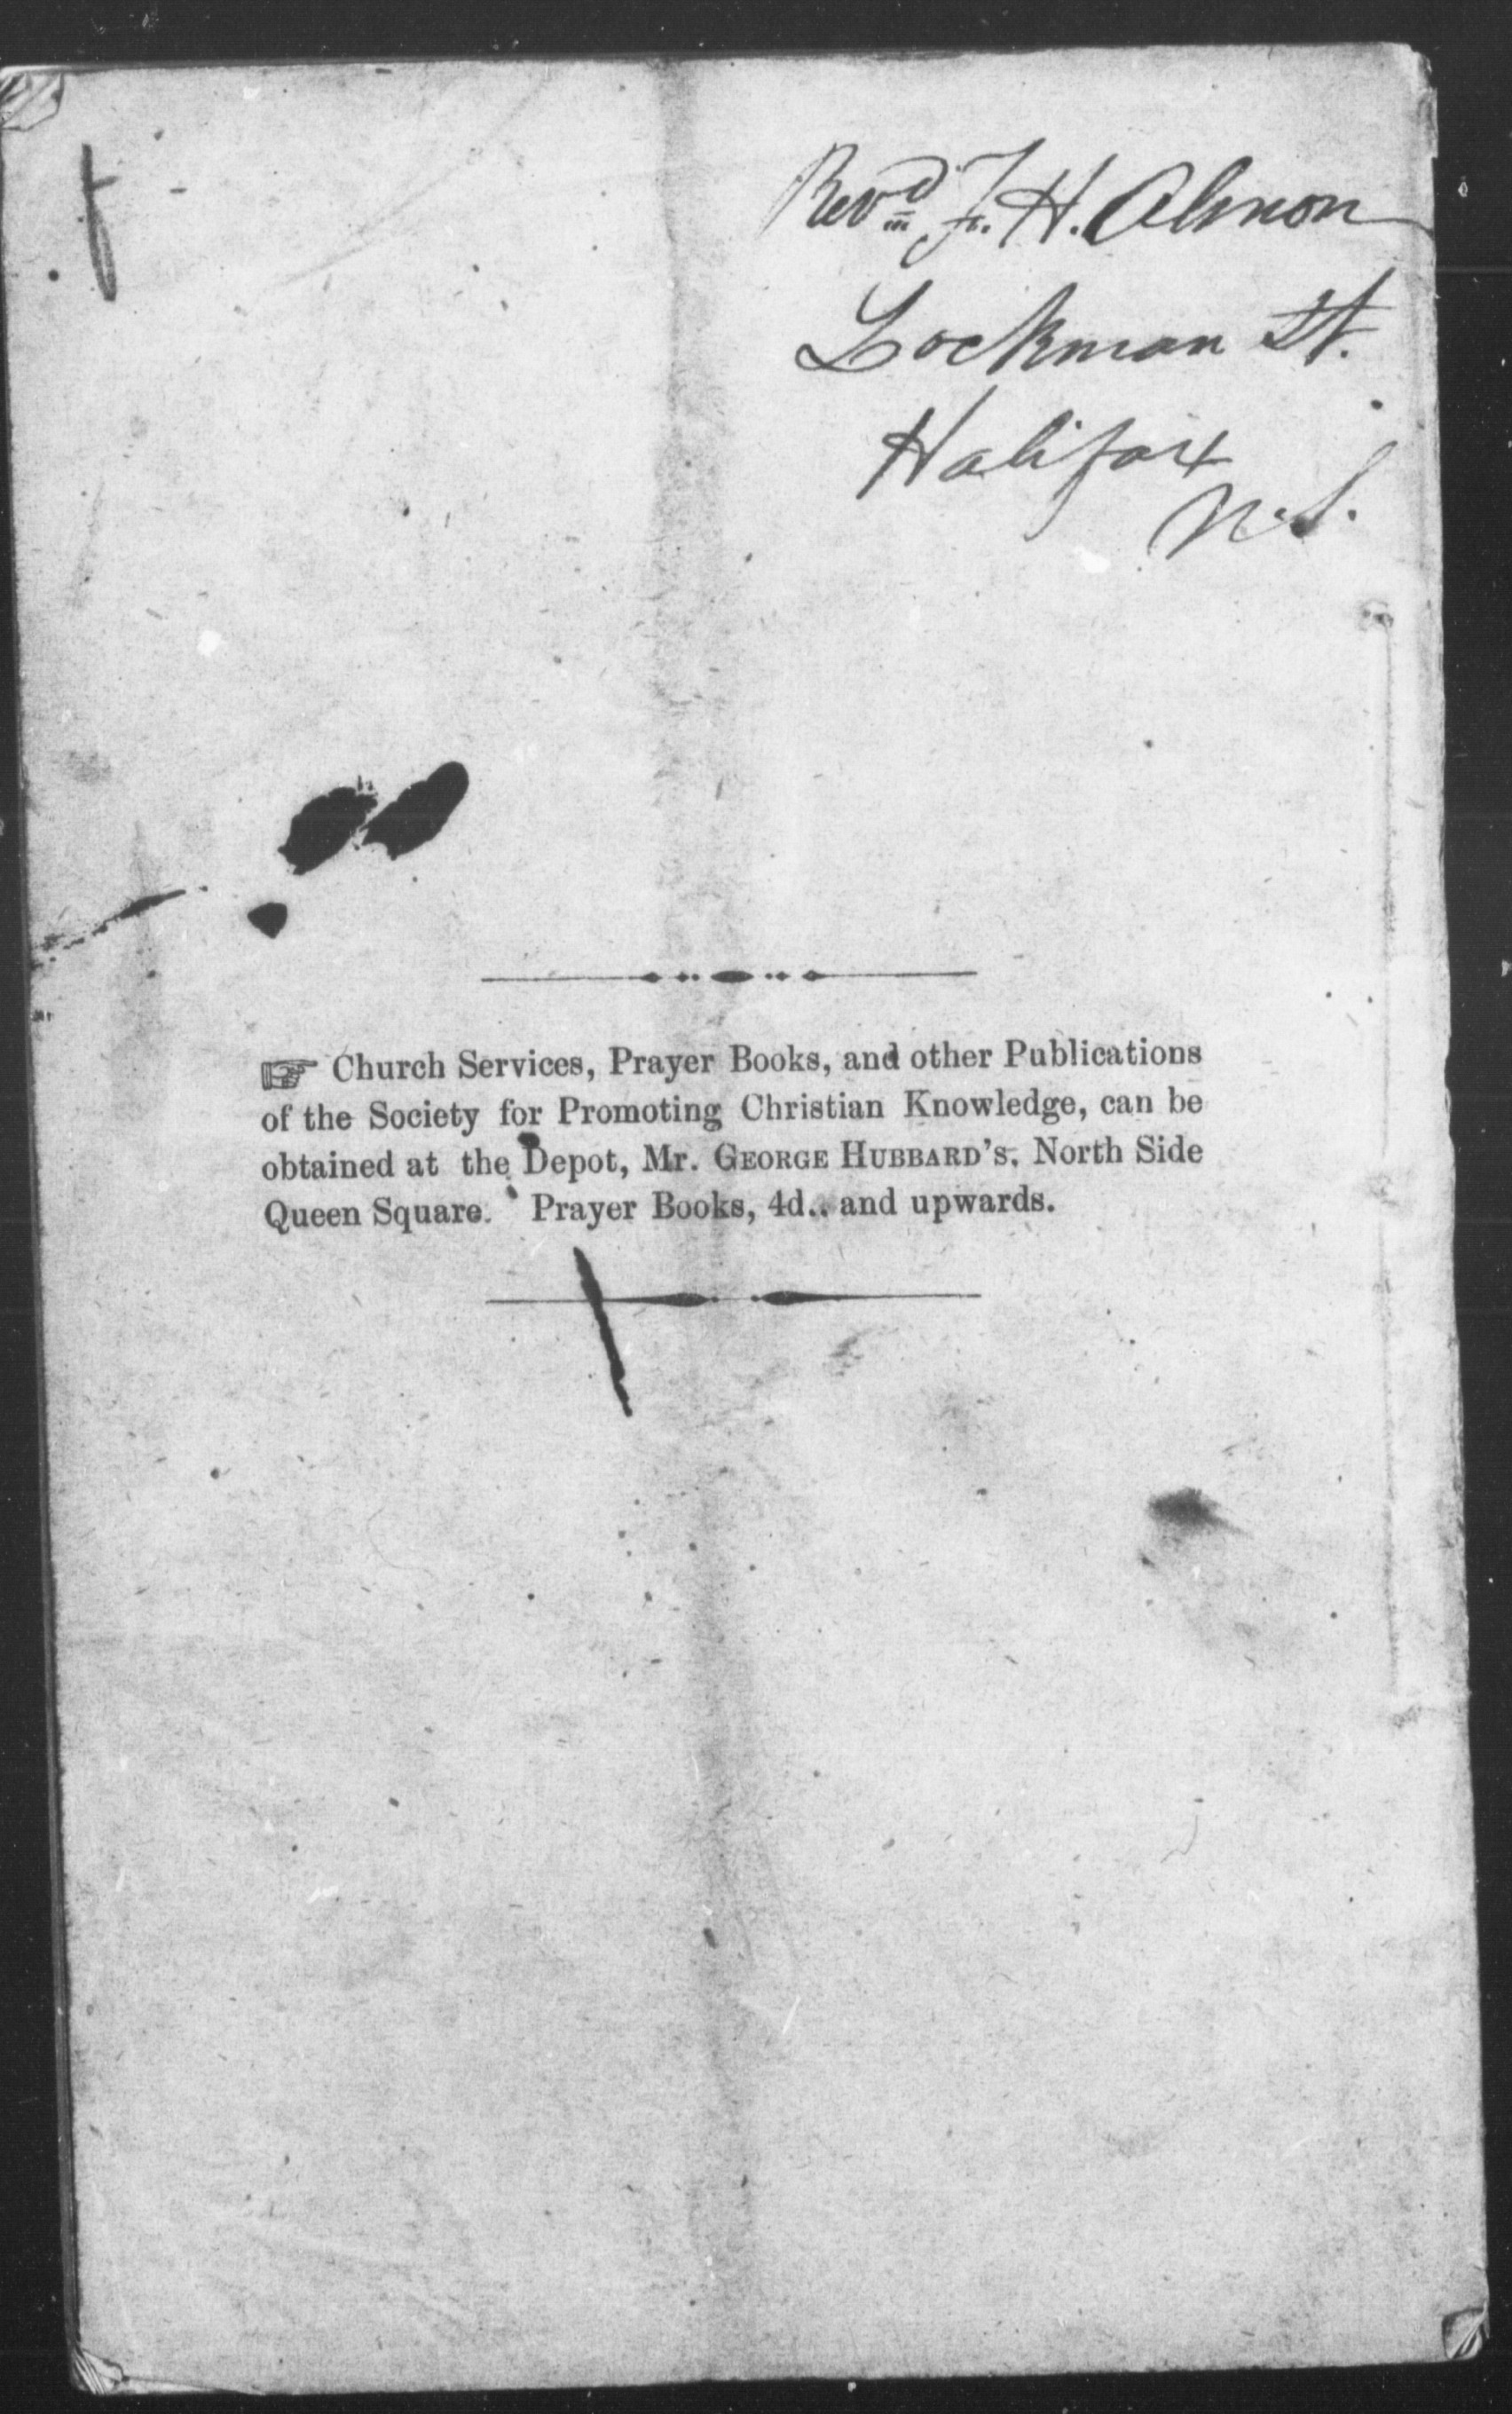 Revd F. H. Almon
Lockman St.
Halifax
N.S.
☞ Church Services, Prayer Books, and other Publications
of the Society for Promoting Christian Knowledge, can be
obtained at the Depot, Mr. GEORGE HUBBARD'S, North Side
Queen Square. Prayer Books, 4d.. and upwards.